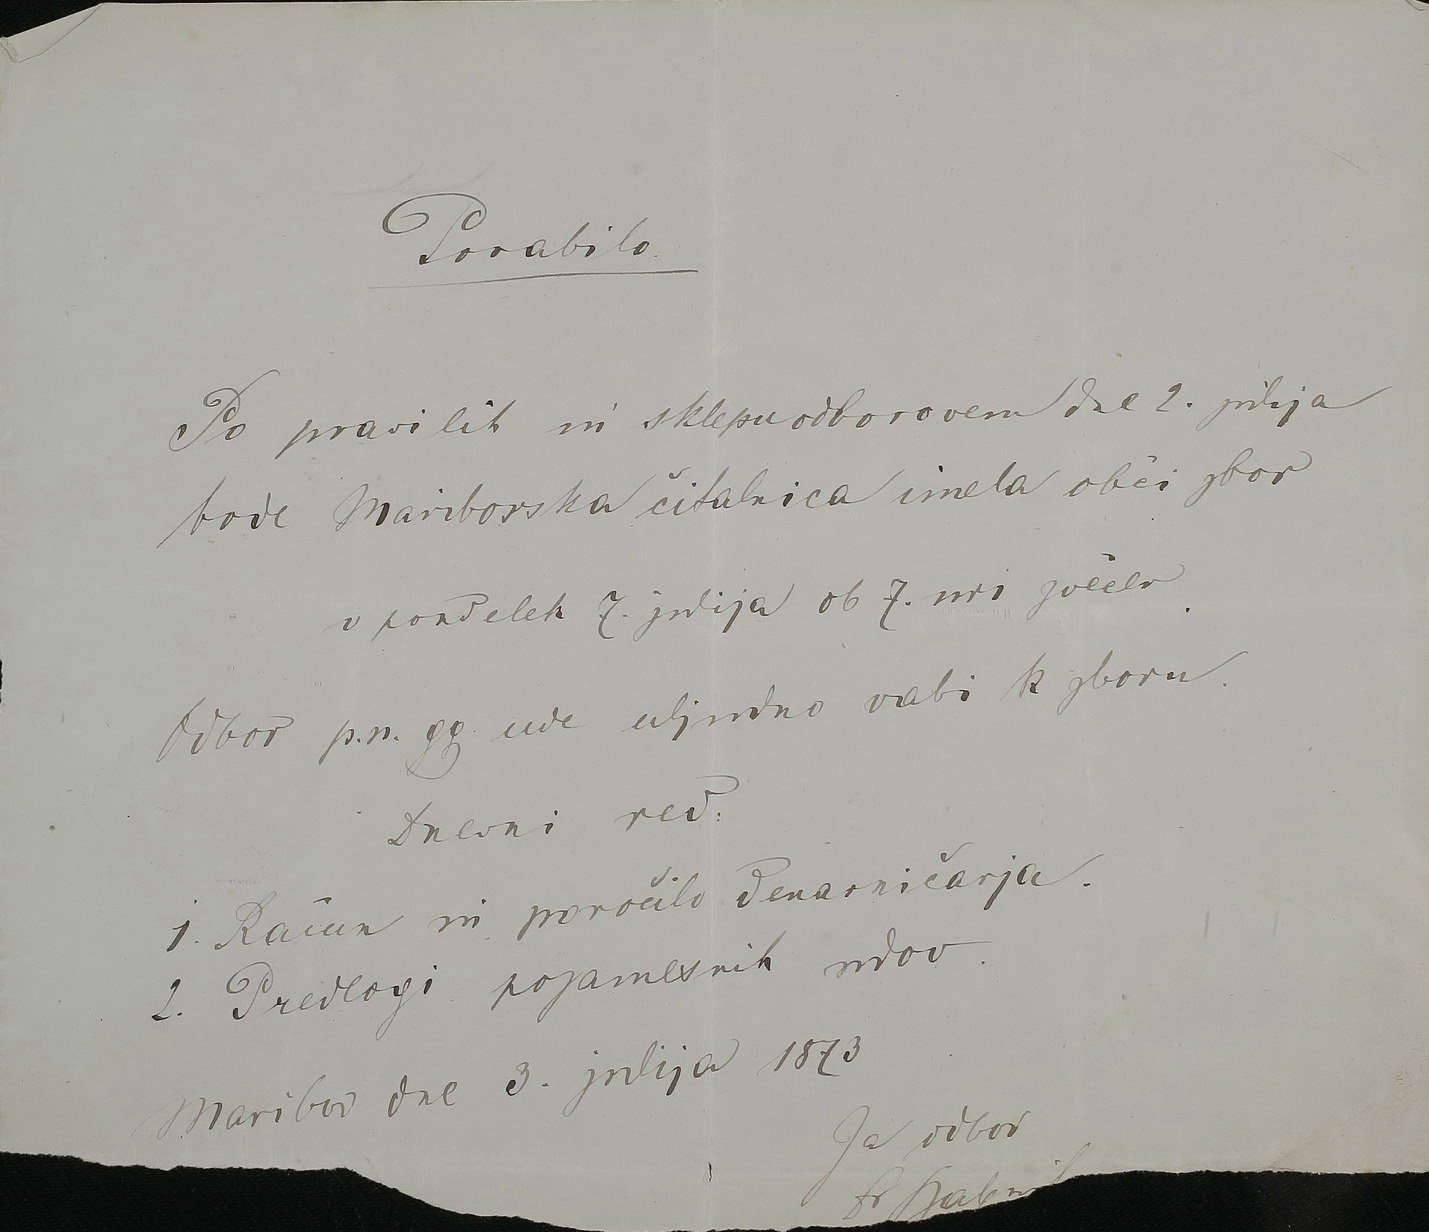 Povabilo.
Po pravilih in sklepu odborovem dne 2. julija
bode Mariborska čitalnica imela obči zbor
v pondelek 7. julija ob 7. uri zvečer.
Odbor p.n. gg. ude uljudno vabi k zboru.
Dnevni red:
1. Račun in poročilo denarničarja.
2. Predlogi posamesnih udov.
Maribor dne 3. julija 1873
Za odbor